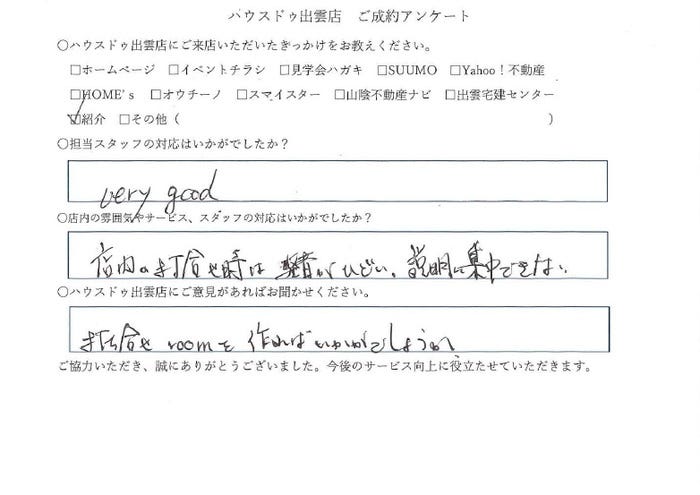 ハウスドゥ出雲店 ご成約アンケート
○ハウスドゥ出雲店にご来店いただいたきっかけをお教えください。
□ホームページ □イベントチラシ □見学会ハガキ □SUUMO □Yahoo！不動産
□HOME's □オウチーノ □スマイスター □山陰不動産ナビ □出雲宅建センター
☑紹介 □その他（ ）
○担当スタッフの対応はいかがでしたか？
very good
○店内の雰囲気やサービス、スタッフの対応はいかがでしたか？
店内の打合せ時は がひどい。説明に集中できない
○ハウスドゥ出雲店にご意見があればお聞かせください。
打合せroomを作ればいかがでしょうか
ご協力いただき、誠にありがとうございました。今後のサービス向上に役立たせていただきます。